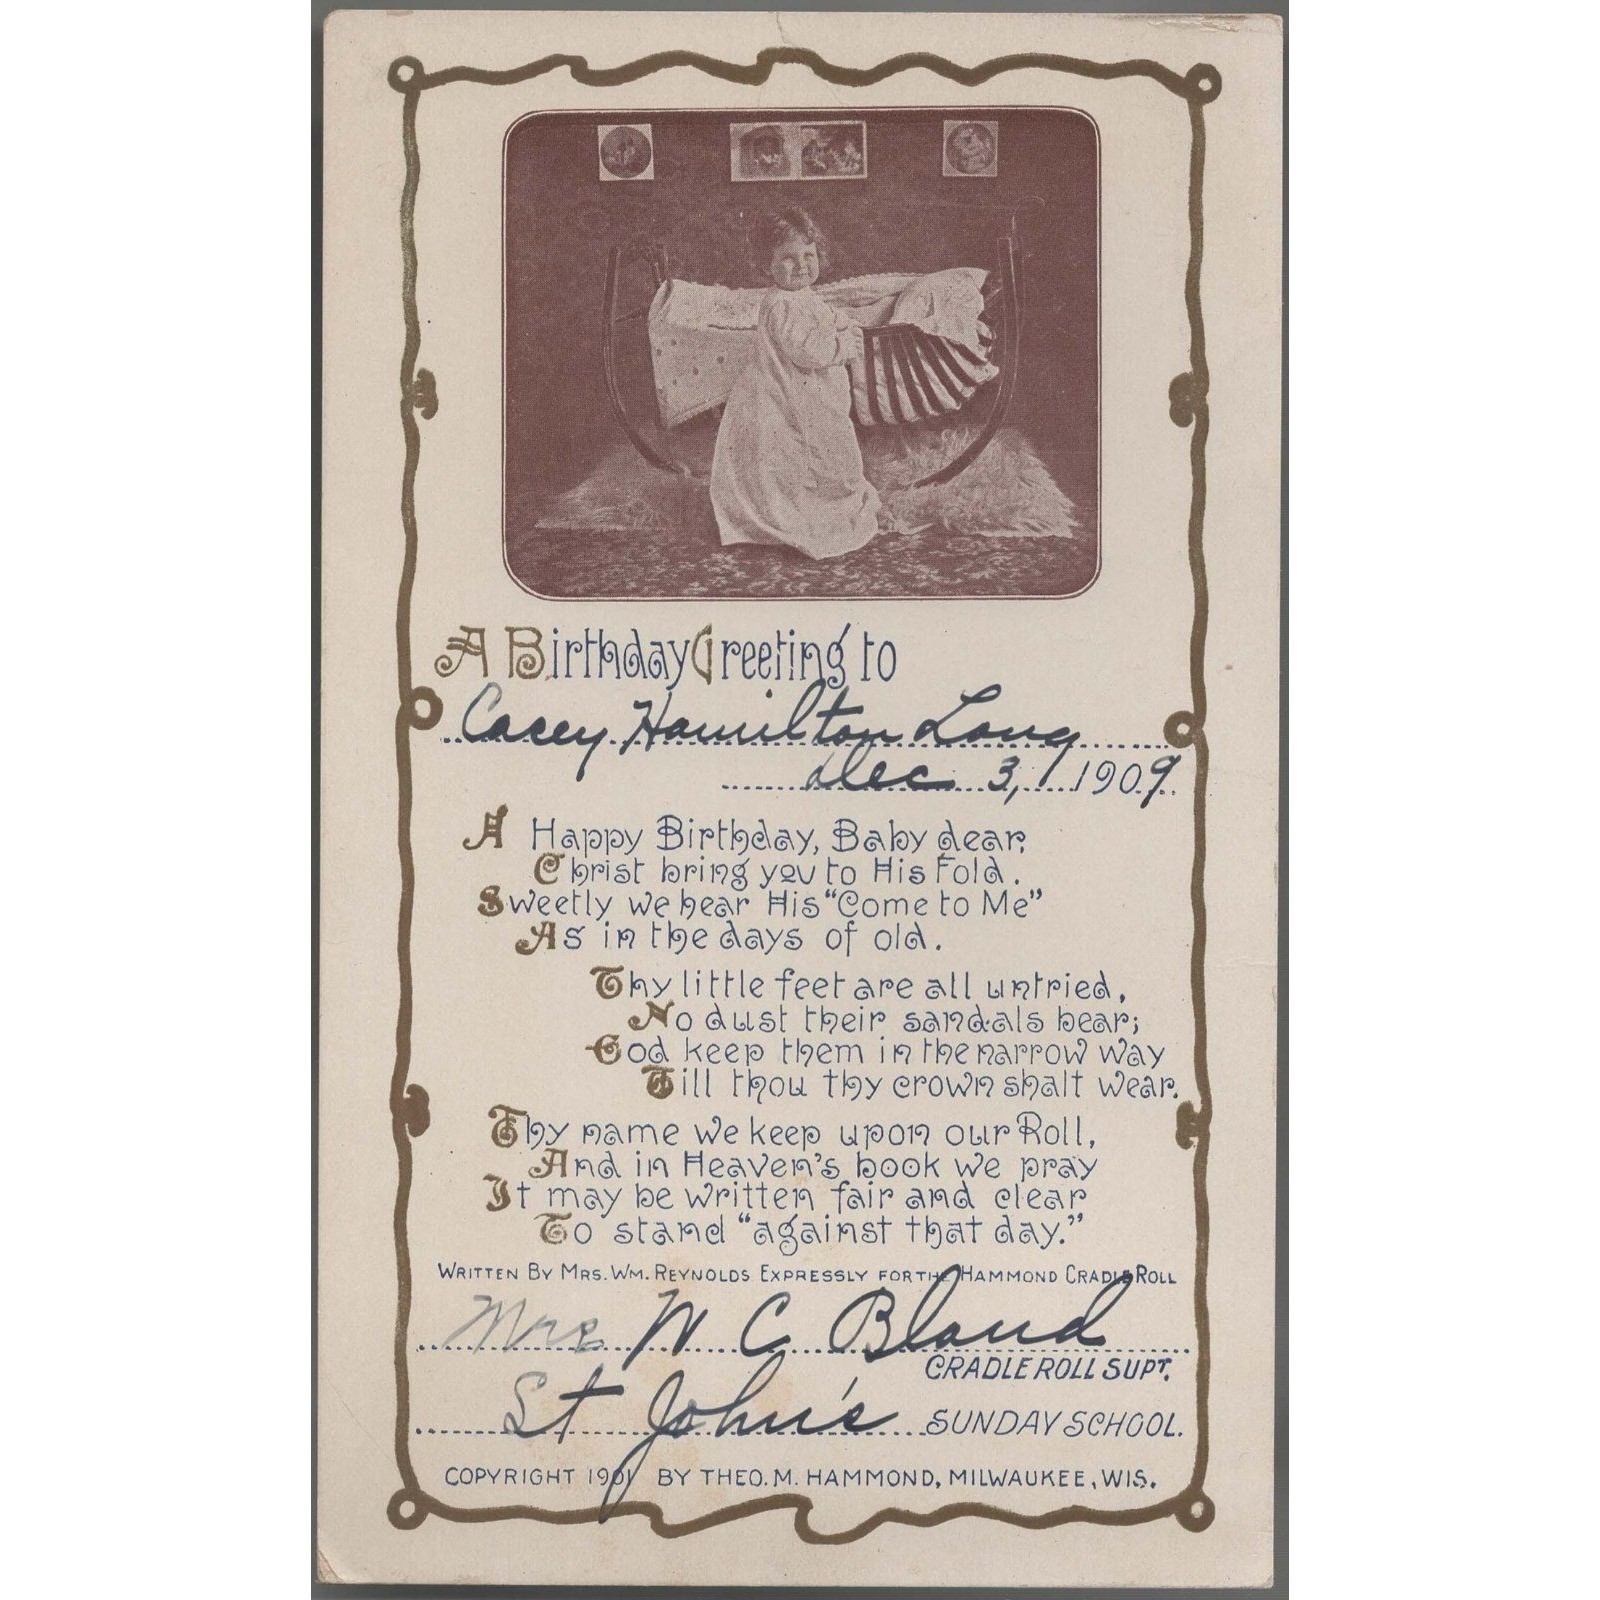 A Birthday Greeting to
Casey Hamilton Long
Dec 3, 1909
A Happy Birthday, Baby dear,
Christ bring you to His Fold.
Sweetly we hear His "Come to Me"
As in the days of old.
Thy little feet are all untried,
No dust their sandals bear;
God keep them in the narrow way
Till thou thy crown shalt wear.
Thy name we keep upon our Roll,
And in Heaven's book we pray
It may be written fair and clear
To stand "against that day."
WRITTEN BY MRS. WM. REYNOLDS EXPRESSLY FOR THE HAMMOND CRADLE ROLL
Mrs W C Bland
CRADLE ROLL SUPT.
St John's SUNDAY SCHOOL.
COPYRIGHT 1901 BY THEO. M. HAMMOND, MILWAUKEE, WIS.